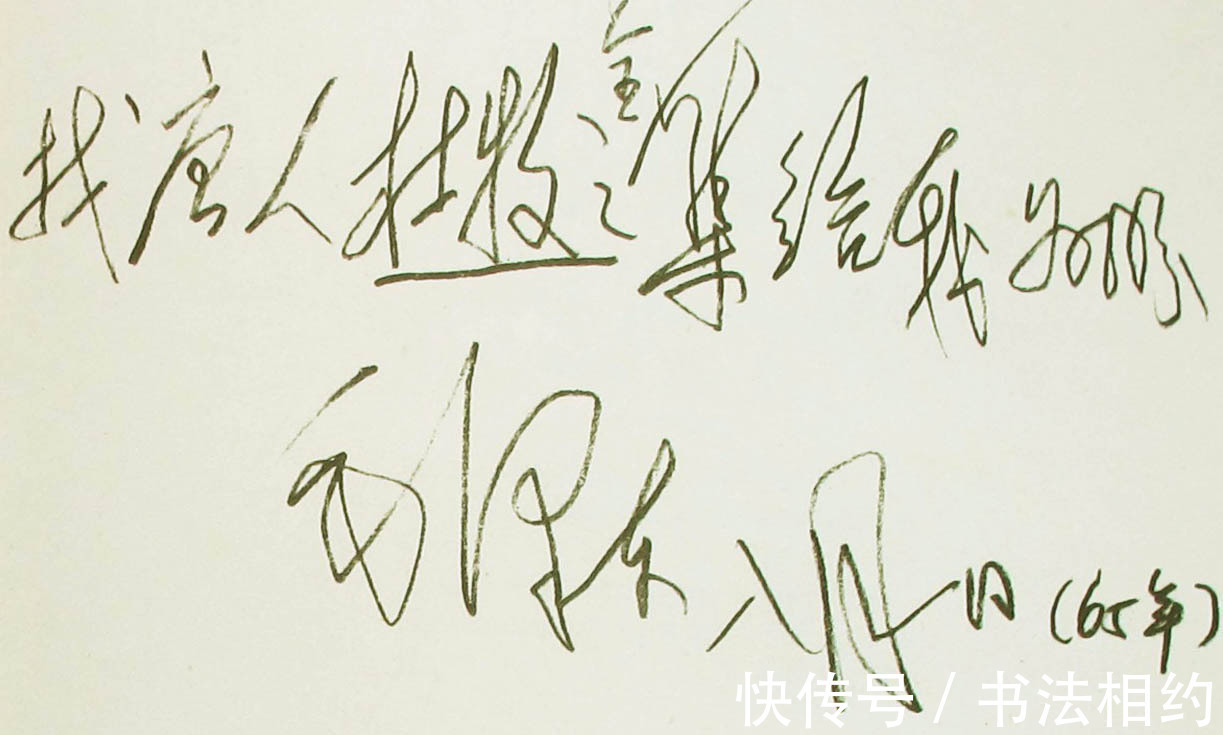 找唐人杜牧之全集给我为盼
毛泽东 八月一日 (65年)
快传号 / 书法相约